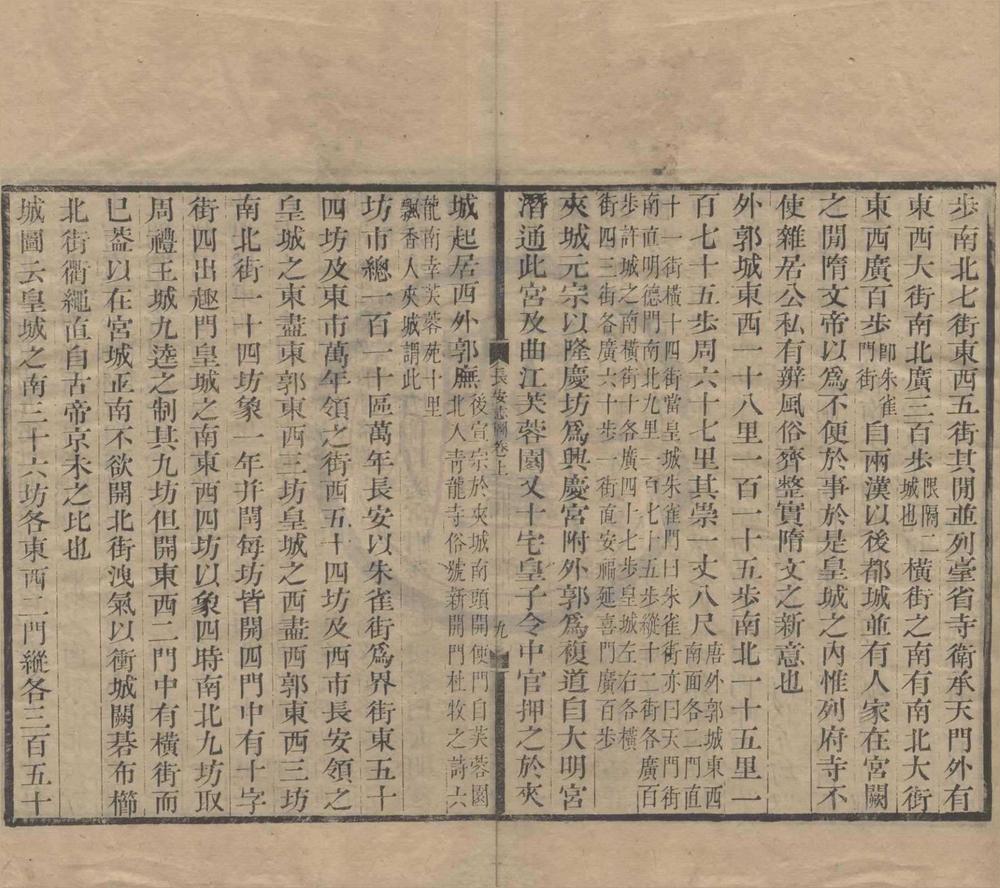 步南北七街東西五街其閒並列臺省寺衛承天門外有
東西大街南北廣三百步城也限隔二橫街之南有南北大街
東西廣百步門街即朱雀自兩漢以後都城並有人家在宮闕
之閒隋文帝以爲不便於事於是皇城之內惟列府寺不
使雜居公私有辨風俗齊整實隋文之新意也
外郭城東西一十八里一百一十五步南北一十五里一
百七十五步周六十七里其崇一丈八尺唐外郭城東西
南面各二門直
十一街橫十四街當皇城朱雀門曰朱雀街亦曰天門街
南直明德門南北九里一百七十五步縱十二街各廣百
步許城之南橫街十各廣四十七步皇城左右各橫
街四三街各廣六十步一街直安福延喜門廣百步
夾城元宗以隆慶坊爲興慶宮附外郭爲複道自大明宮
潛通此宮及曲江芙蓉園又十宅皇子令中官押之於夾
長安志圖卷上 九
城起居西外郭廡後宣宗於夾城南頭開便門自芙蓉園
北入青龍寺俗號新開門杜牧之詩六
龍南幸芙蓉苑十里
飄香入夾城謂此
坊市總一百一十區萬年長安以朱雀街爲界街東五十
四坊及東市萬年領之街西五十四坊及西市長安領之
皇城之東盡東郭東西三坊皇城之西盡西郭東西三坊
南北街一十四坊象一年并閏每坊皆開四門中有十字
街四出趣門皇城之南東西四坊以象四時南北九坊取
周禮王城九逵之制其九坊但開東西二門中有橫街而
巳葢以在宮城正南不欲開北街洩氣以衝城闕棊布櫛
北街衢繩直自古帝京未之比也
城圖云皇城之南三十六坊各東西二門縱各三百五十